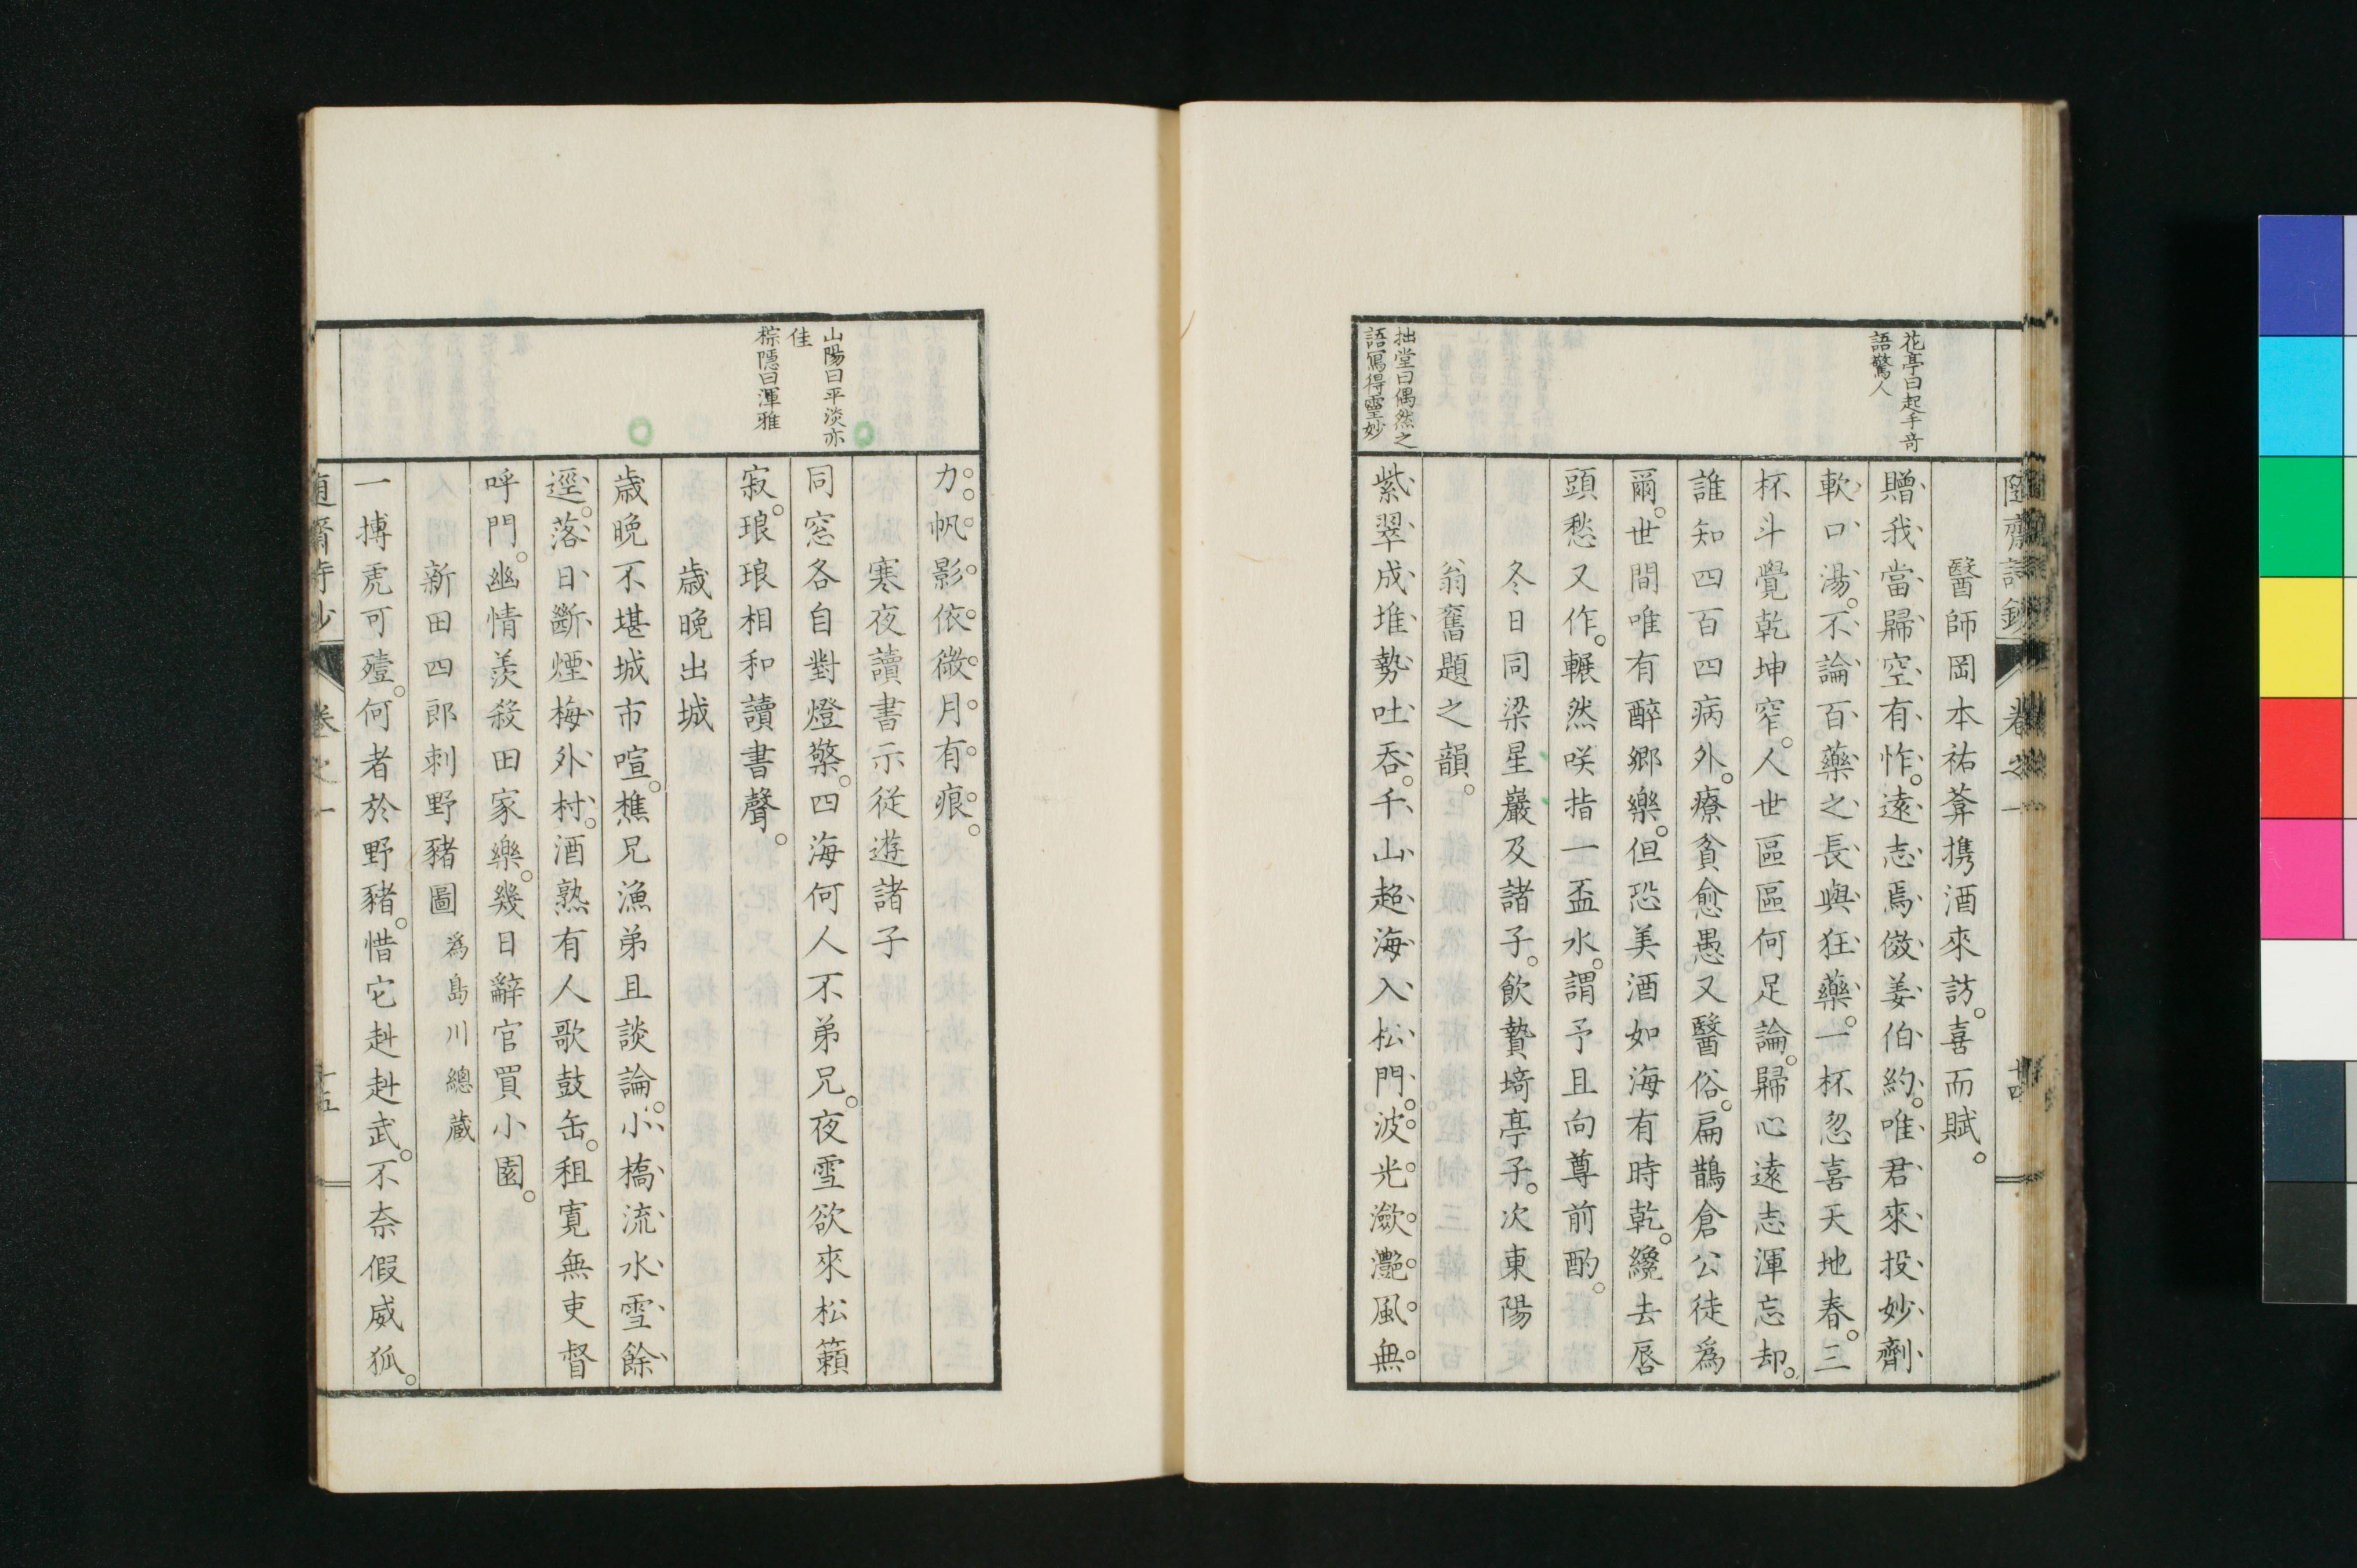 花亭曰起手奇
語驚人
拙堂曰偶然之
語寫得靈妙
醫師岡本祐葊携酒來訪。喜而賦。
贈我當歸空有怍。遠志焉傚姜伯約。唯君來投妙劑
軟口湯。不論百藥之長與狂藥。一杯忽喜天地春。三
杯斗覺乾坤窄。人世區區何足論。歸心遠志渾忘却。
誰知四百四病外。療貧愈愚又醫俗。扁鵲倉公徒爲
爾。世間唯有醉鄉樂。但恐美酒如海有時乾。纔去唇
頭愁又作。冁然咲指一盃水。謂予且向尊前酌。
冬日同梁星巖及諸子。飲贄埼亭子。次東陽
翁舊題之韻。
紫翠成堆勢吐吞。千山超海入松門。波光瀲灔風無
山陽曰平淡亦
佳
棕隱曰渾雅
力。帆影依微月有痕。
寒夜讀書示從遊諸子
同窓各自對燈檠。四海何人不弟兄。夜雪欲來松籟
寂。琅琅相和讀書聲。
歲晚出城
歲晚不堪城市喧。樵兄漁弟且談論。小橋流水雪餘
逕。落日斷煙梅外村。酒熟有人歌鼓缶。租寬無吏督
呼門。幽情羨殺田家樂。幾日辭官買小園。
新田四郎刺野豬圖 爲島川總藏
一搏虎可殪。何者於野豬。惜它赳赳武。不奈假威狐。